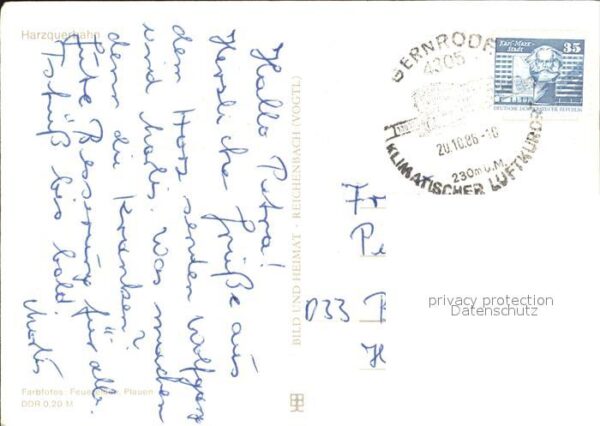 Harzquerbahn
Hallo Petra!
Herzliche Grüße aus
dem Harz senden Wolfgang
und Moritz. Was machen
denn die Kranken?
Gute Besserung für alle.
Tschüß bis bald!
BILD UND HEIMAT · REICHENBACH (VOGTL)
Farbfotos: Plauen
DDR 0,20 M
GERNRODE
4305
20.10.86-10
230m ü.M.
KLIMATISCHER LUFTKURORT
Karl-Marx-
Stadt
35
DEUTSCHE DEMOKRATISCHE REPUBLIK
Fr
Pe
D33
H
privacy protection
Datenschutz